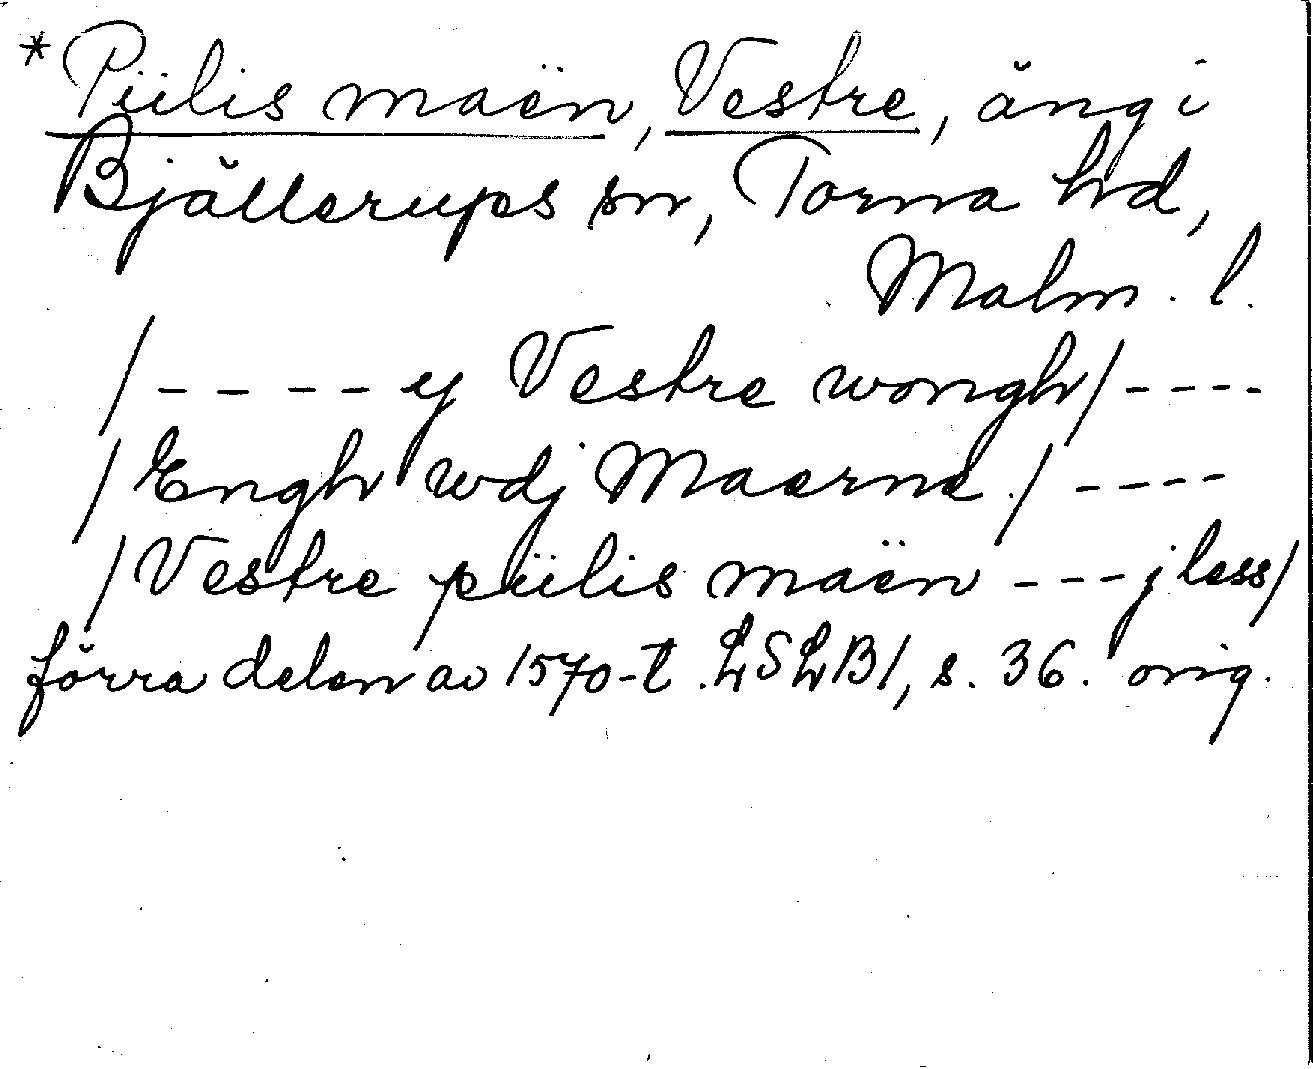 *Piilis maën, Vestre, äng i
Bjällerups sn, Torna hd,
Malm. l.
/- - - - y Vestre wongh/- - - -
/Engh wdj Maerne./- - - -
/Vestre piilis maën - - - j less/
förra delen av 1570-t. LSLB1, s. 36. orig.